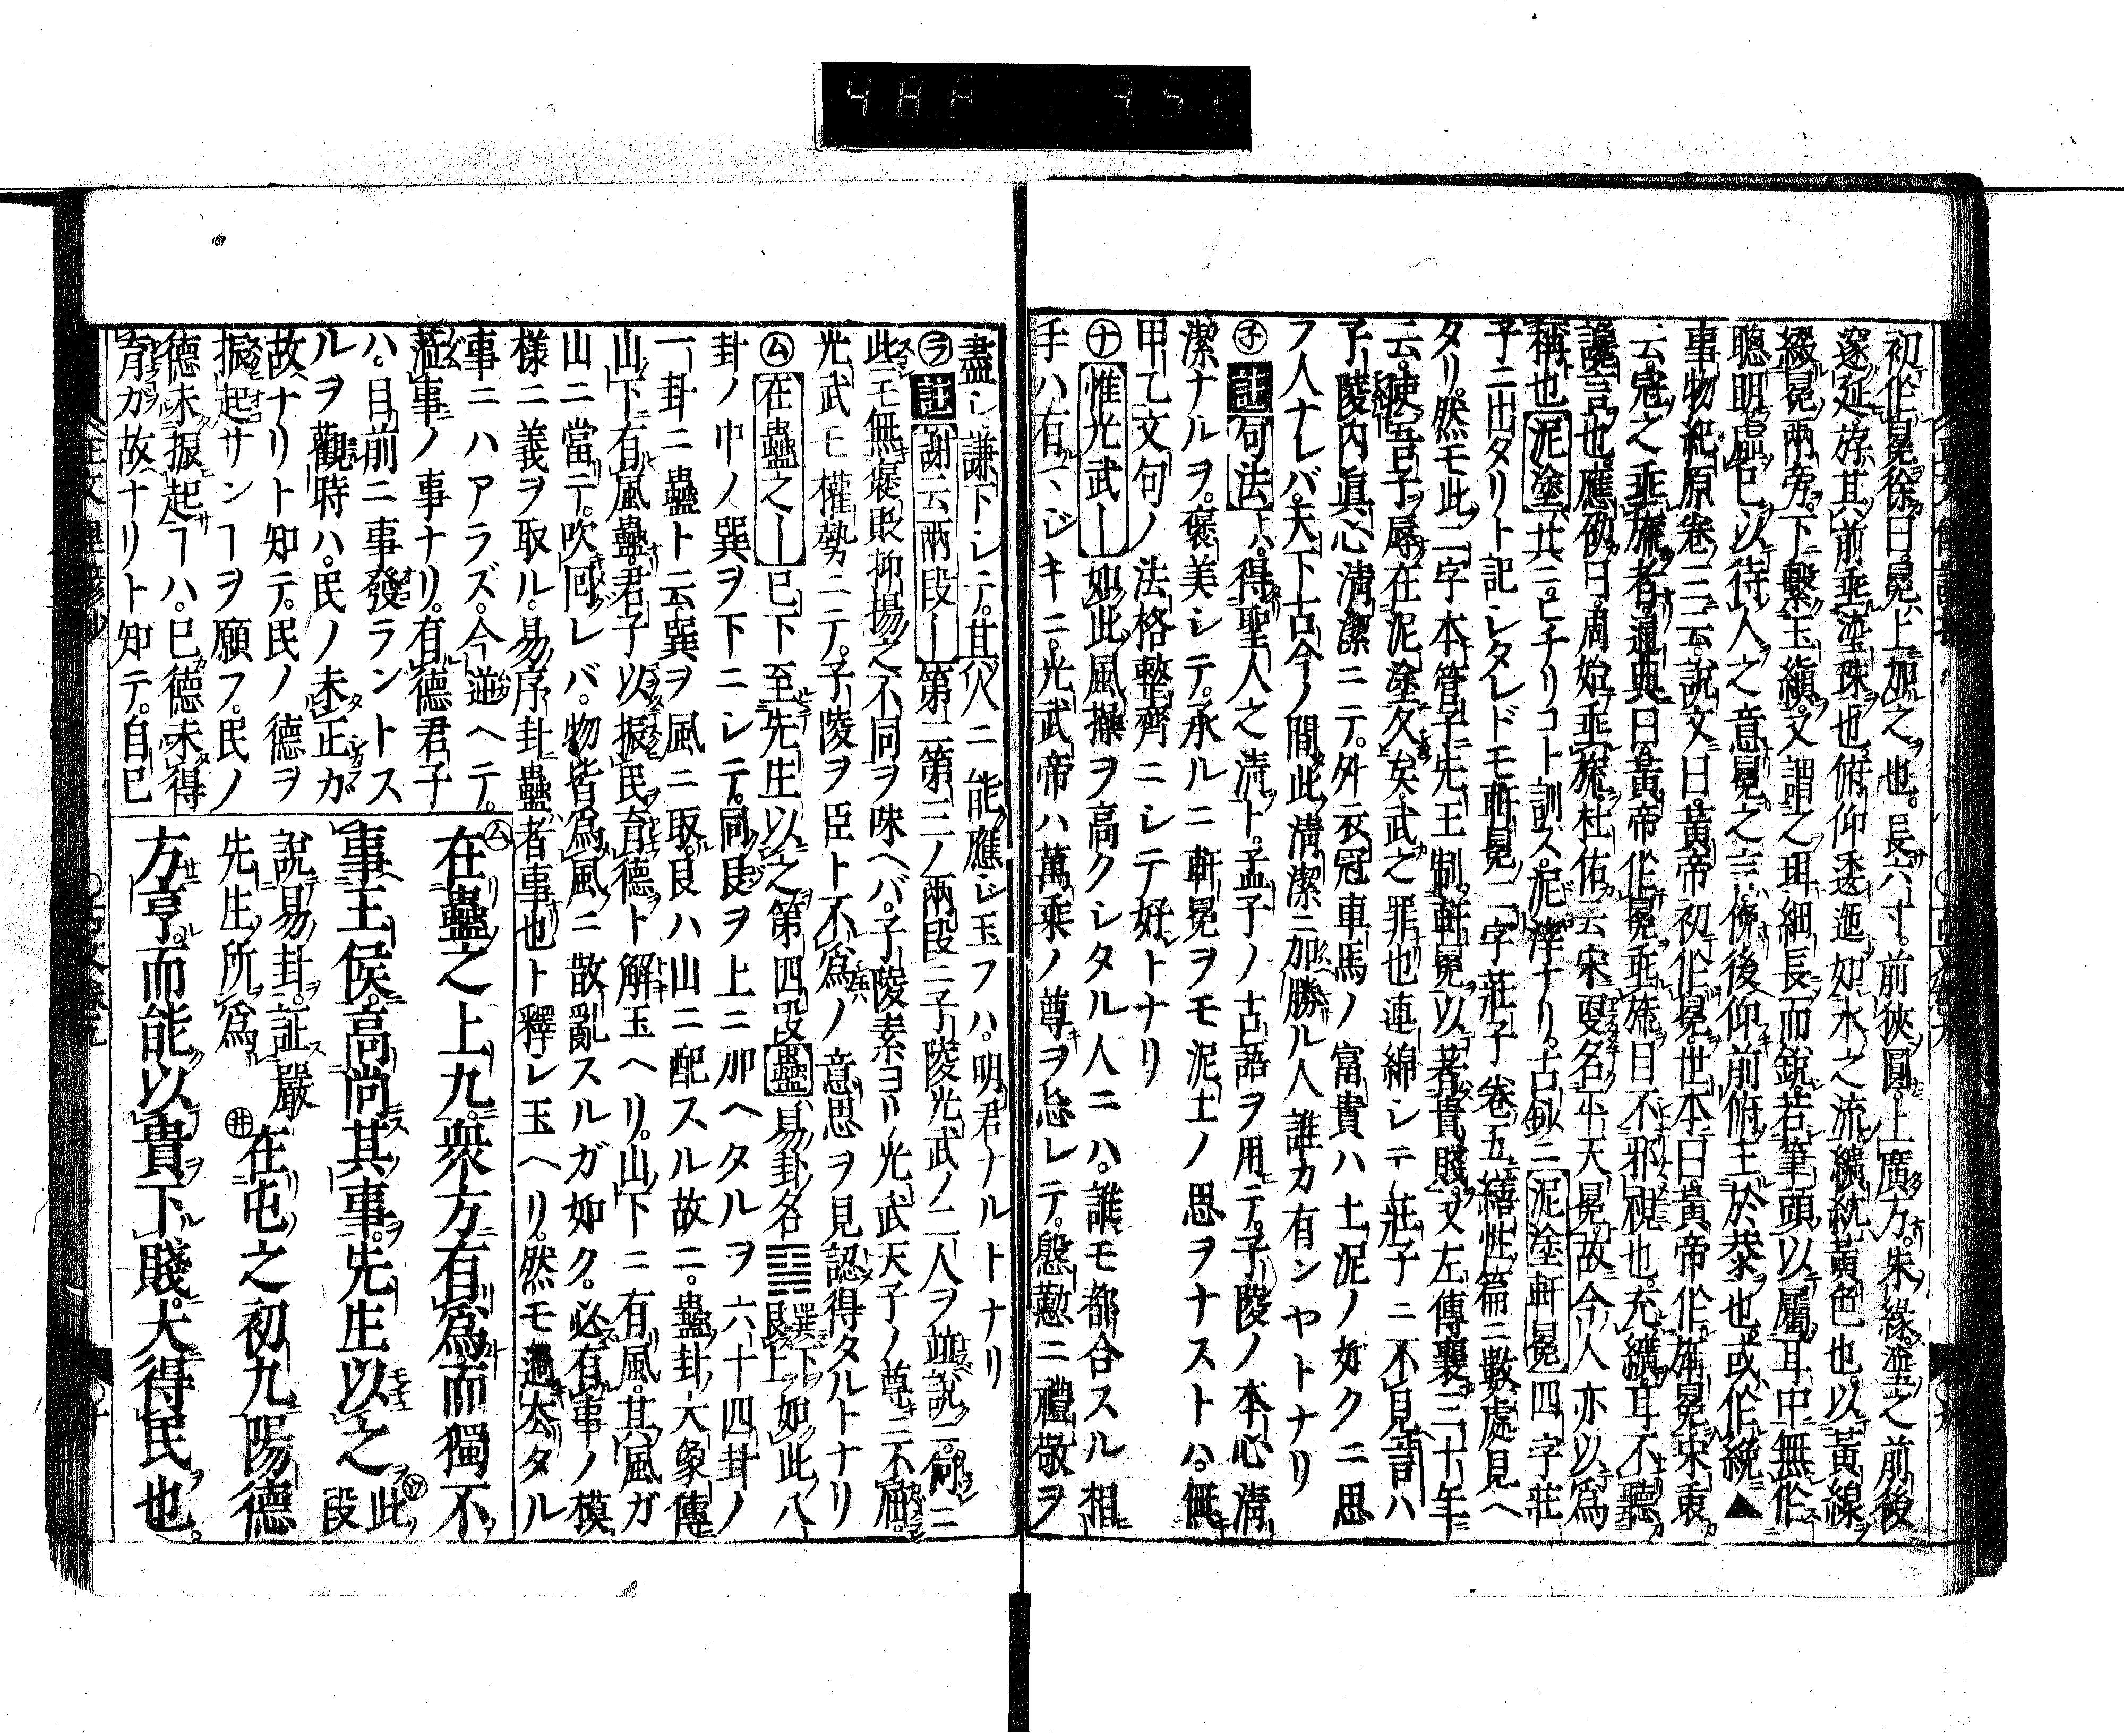 初作冕徐曰冕上加之也長六寸前狹圓上廣方朱緣塗之前後
邃延斿其前垂塗珠也俯仰逶迤如水之流纊紞黃色也以黃線
綴冕兩旁下繫玉縝又謂之珥細長而銳若筆頭以屬耳中無作
聰明虛己以待人之意冕之言俛後仰前俯主於恭也或作絻▲
事物紀原卷三云說文曰黃帝初作冕世本曰黃帝作旃冕宋衷
云冠之垂旒者通典曰黃帝作冕垂旒目不邪視也充纊耳不聽
讒言也應劭曰周始垂旒杜佑云宋更名平天冕故今人亦以爲
稱也泥塗共ニヒチリコト訓ス泥滓ナリ古鈔ニ泥塗軒冕四字莊
子ニ出タリト記シタレドモ軒冕二字莊子卷五繕性篇ニ數處見ヘ
タリ然モ此二字本管子先王制軒冕以著貴賤又左傳襄三十年
云使吾子辱在泥塗久矣武之罪也連綿シテ莊子ニ不見言ハ
子陵内眞心淸潔ニテ外衣冠車馬ノ富貴ハ土泥ノ如クニ思
フ人ナレバ天下古今ノ間此淸潔ニ加勝ル人誰カ有ンヤトナリ
㋧註句法ハ得聖人之淸ト孟子ノ古語ヲ用テ子陵ノ本心淸
潔ナルヲ褒美シテ承ルニ軒冕ヲモ泥土ノ思ヲナストハ
甲乙文句ノ法格整齊ニシテ好トナリ
㋤惟光武｜如此風操ヲ高クシタル人ニハ誰モ都合スル相
手ハ有マジキニ光武帝ハ萬乘ノ尊ヲ忘レテ慇懃ニ禮敬ヲ
盡シ謙下シテ其人ニ能應ジ玉フハ明君ナルトナリ
㋶註謝云兩段｜第二第三ノ兩段ニ子陵光武ノ二人ヲ並說一句ニ
此モ無褒貶抑揚之不同ヲ味ヘバ子陵素ヨリ光武天子ノ尊ニ不屈
光武モ權勢ニテ子陵ヲ臣ト不爲ノ意思ヲ見認得タルトナリ
㋰在蠱之｜已下至先生以之第四段蠱易卦名䷑巽下艮上如此八
卦ノ中ノ巽ヲ下ニシテ同艮ヲ上ニ加ヘタルヲ六十四卦ノ
一卦ニ蠱ト云巽ヲ風ニ取艮ハ山ニ配スル故ニ蠱卦大象傳
山下有風蠱君子以振民育德ト解玉ヘリ山下ニ有風其風ガ
山ニ當テ吹回レバ物皆爲風ニ散亂スルガ如ク必有事ノ模
樣ニ義ヲ取ル易序卦蠱者事也ト釋シ玉ヘリ然モ過太タル
事ニハアラズ今遊ヘテ
蒞事ノ事ナリ有德君子
ハ目前ニ事發ラントス
ルヲ觀時ハ民ノ未正カ
故ナリト知テ民ノ德ヲ
振起サンヿヲ願フ民ノ
德未振起ヿハ已德未得
育カ故ナリト知テ自己
㋰在蠱之上九衆方有爲而獨不
事王侯高尚其事先生以之此段
說易卦証嚴
先生所爲㋼在屯之初九陽德
方亨而能以貴下賤大得民也